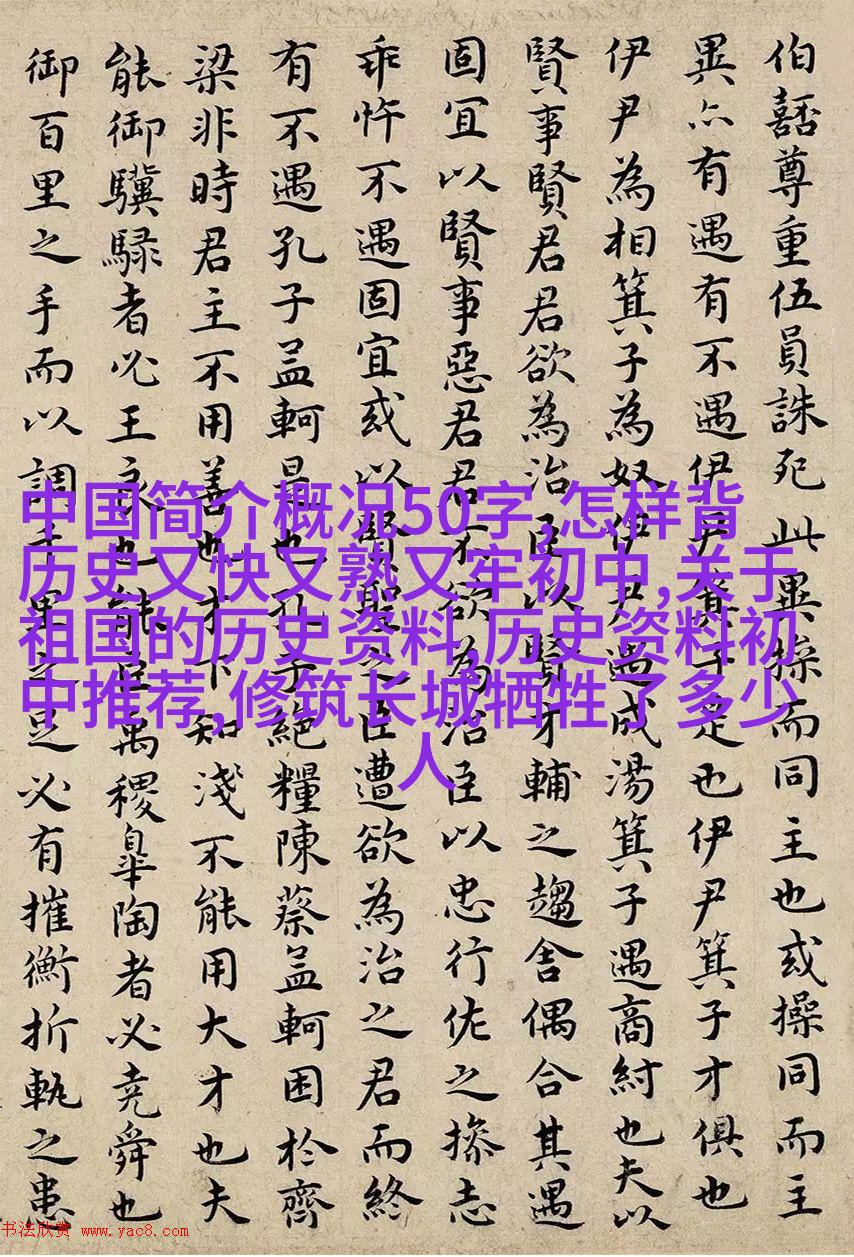 伯嚭尊重伍員誅死此異操而同主也或操同而主
異亦有遇有不遇伊尹箕子是也伊尹箕子才俱也
伊尹為相箕子為奴伊尹遇成湯箕子遇商紂也夫以
賢事賢君君欲為治臣以賢才輔之趨舍偶合其遇
固宜以賢事惡君君不欲為治臣以忠行佐之操志
乖忤不遇固宜或以賢聖之臣遭欲為治之君而終
有不遇孔子孟軻是也孔子絕糧陳蔡孟軻困於齊
梁非時君主不用善也才下知淺不能用大才也夫
能御驥騄者必王良也能臣禹稷皋陶者必堯舜也
御百里之手而以調千里之足必有摧衡折軛之患
中国简介概况50字,怎样背
历史又快又熟又牢初中,关于
祖国的历史资料,历史资料初
中推荐,修筑长城牺牲了多少
人
书法欣赏 www.yac8.com